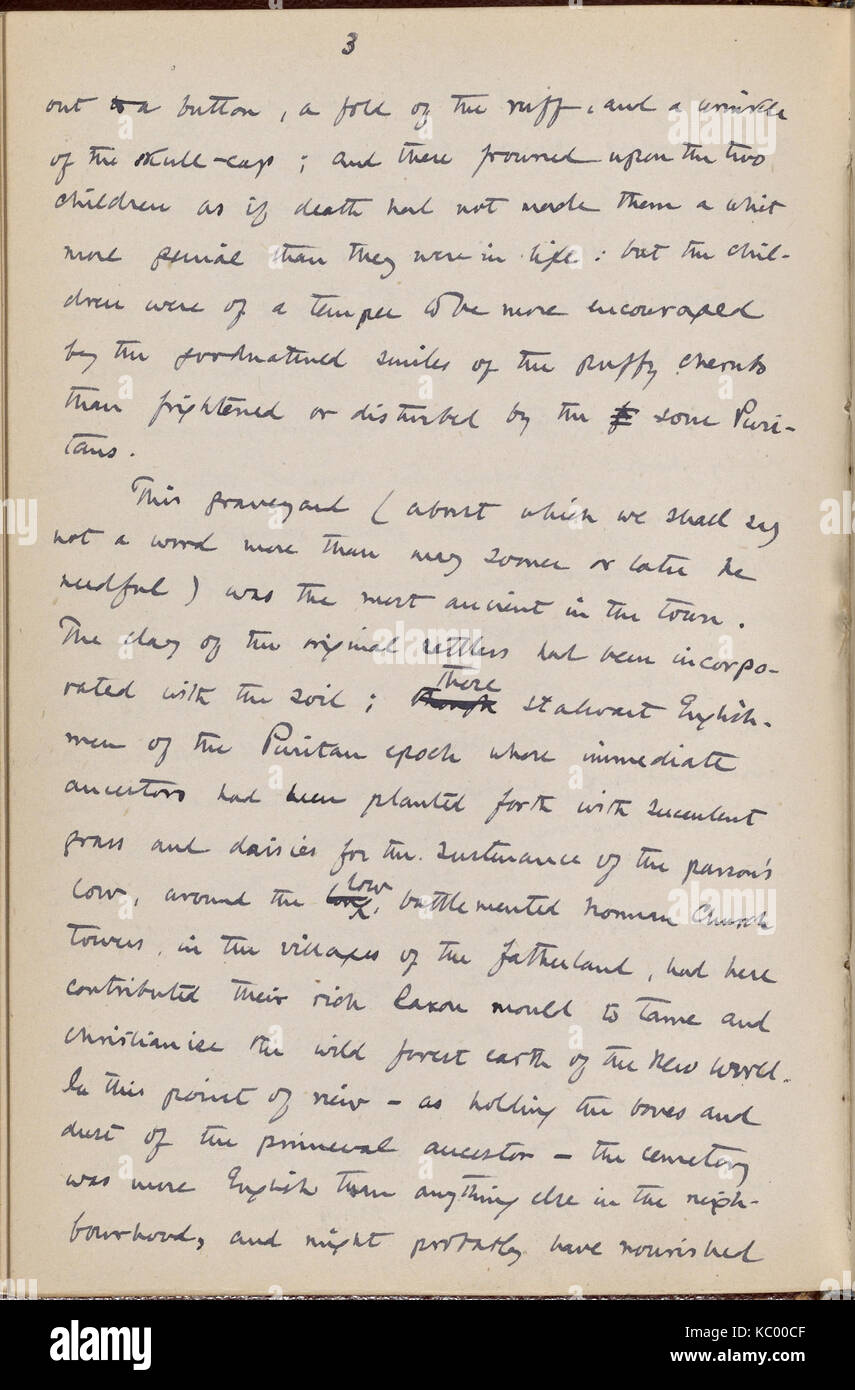 3
out to a button, a fold of the ruff, and a wrinkle
of the skull-cap; and these frowned upon the two
children as if death had not made them a whit
more genial than they were in life: but the chil-
dren were of a temper to be more encouraged
by the goodnatured smiles of the puffy cherubs
than frightened or disturbed by the sour Puri-
tans.
This graveyard (about which we shall say
not a word more than may sooner or later be
needful) was the most ancient in the town.
The clay of the original settlers had been incorpo-
there
rated with the soil; though stalwart English-
men of the Puritan epoch whose immediate
ancestors had been planted forth with succulent
grass and daisies for the sustenance of the parson's
low
cow, around the battlemented Norman Church
towers, in the villages of the fatherland, had here
contributed their rich Saxon mould to tame and
christianise the wild forest earth of the New World.
In this point of view – as holding the bones and
dust of the primeval ancestor – the cemetery
was more English than anything else in the neigh-
bourhood, and might probably have nourished
alamy
alamy
alamy
alamy
alamy
Image ID: KC00CF
www.alamy.com